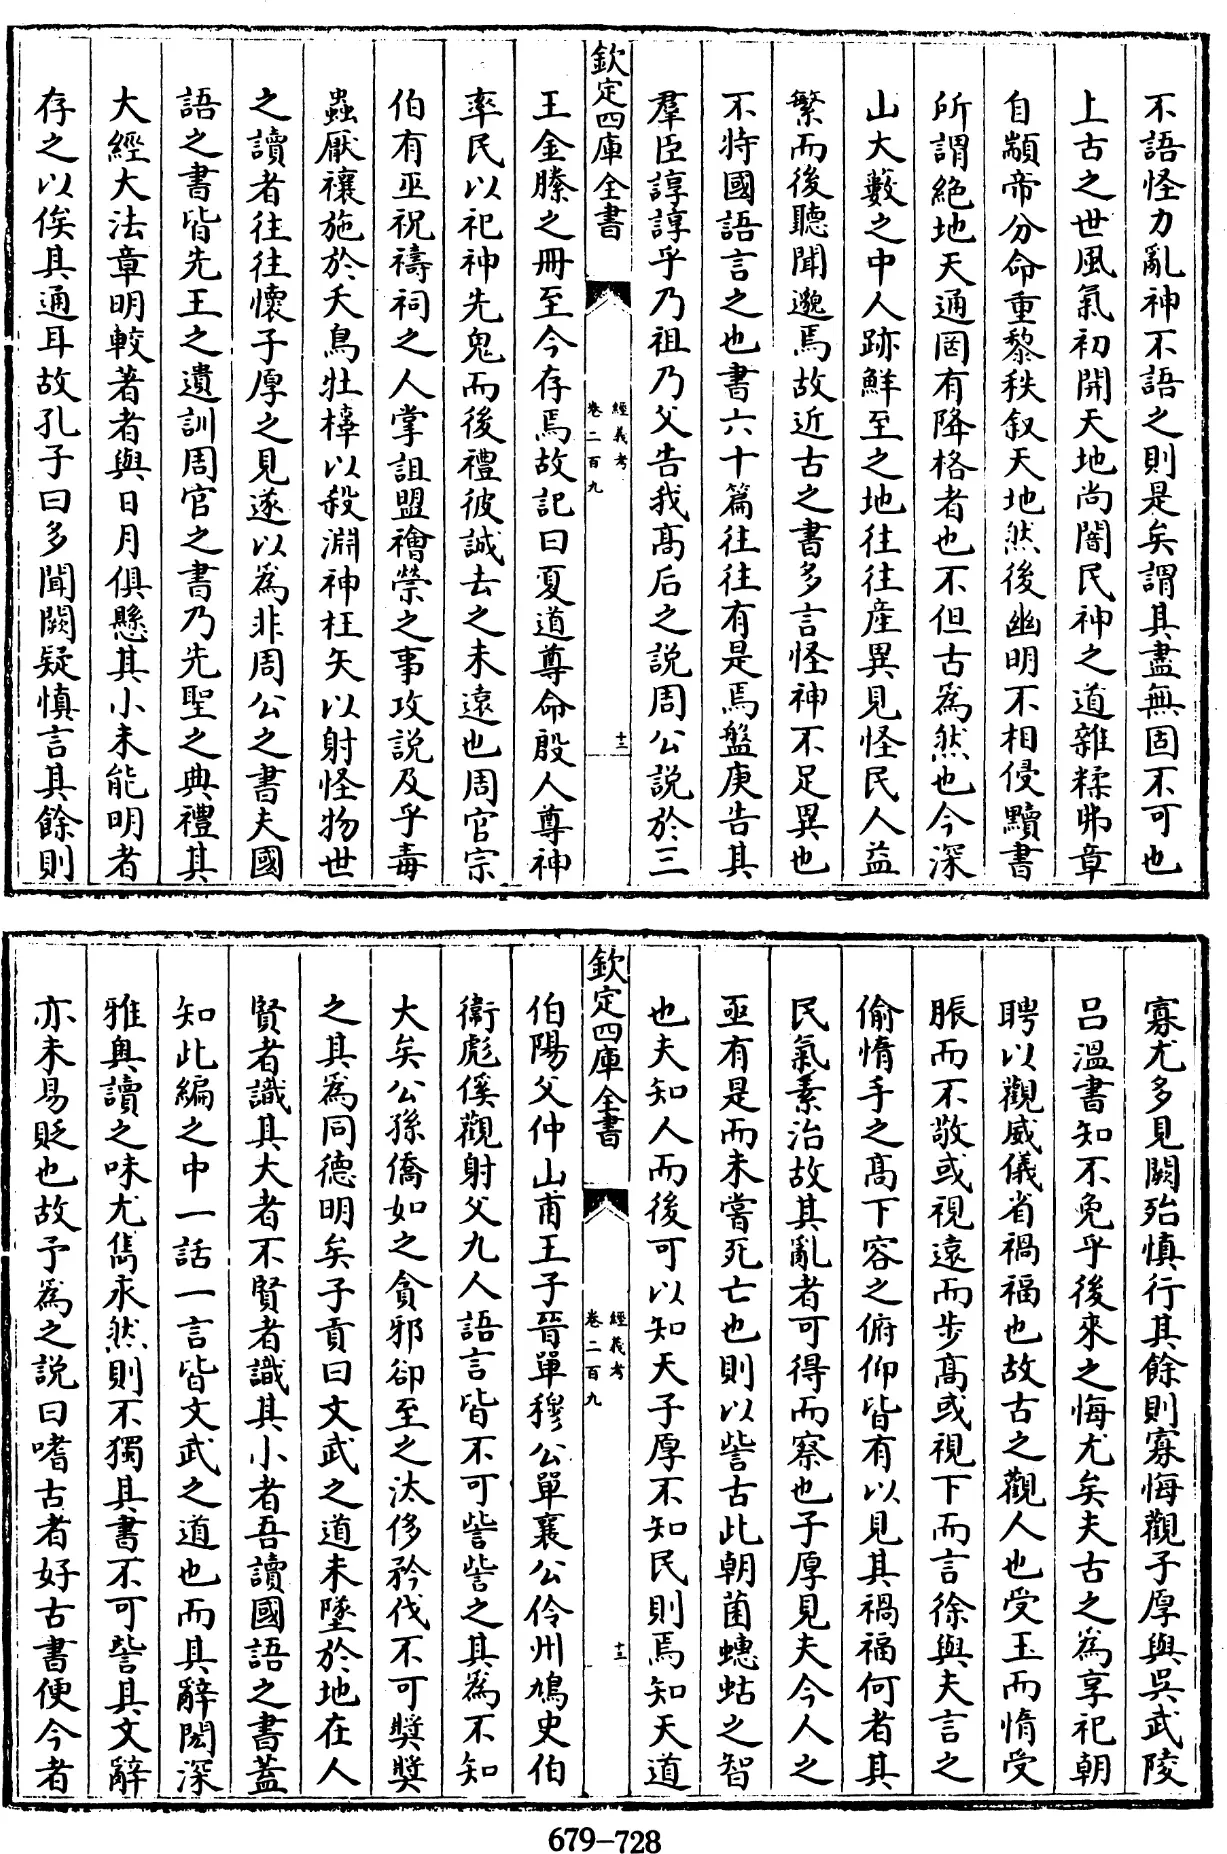 不語怪力亂神不語之則是矣謂其盡無固不可也
上古之世風氣初開天地尚闇民神之道雜糅弗章
自顓帝分命重黎秩叙天地然後幽明不相侵黷書
所謂絶地天通罔有降格者也不但古為然也今深
山大藪之中人跡鮮至之地往往産異見怪民人益
繁而後聽聞邈焉故近古之書多言怪神不足異也
不特國語言之也書六十篇往往有是焉盤庚告其
羣臣諄諄乎乃祖乃父告我髙后之説周公説於三
欽定四庫全書
經義考
卷二百九
十三
王金縢之冊至今存焉故記曰夏道尊命殷人尊神
率民以祀神先鬼而後禮彼誠去之未遠也周官宗
伯有巫祝禱祠之人掌詛盟禬禜之事攻説及乎毒
蟲厭禳施於夭鳥牡橭以殺淵神枉矢以射怪物世
之讀者往往懷子厚之見遂以為非周公之書夫國
語之書皆先王之遺訓周官之書乃先聖之典禮其
大經大法章明較著者與日月俱懸其小未能明者
存之以俟其通耳故孔子曰多聞闕疑慎言其餘則
寡尤多見闕殆慎行其餘則寡悔觀子厚與吳武陵
吕溫書知不免乎後來之悔尤矣夫古之為享祀朝
聘以觀威儀省禍福也故古之觀人也受玉而惰受
脤而不敬或視遠而步髙或視下而言徐與夫言之
偷惰手之髙下容之俯仰皆有以見其禍福何者其
民氣素治故其亂者可得而察也子厚見夫今人之
亟有是而未嘗死亡也則以訾古此朝菌蟪蛄之智
也夫知人而後可以知天子厚不知民則焉知天道
欽定四庫全書
經義考
卷二百九
十三
伯陽父仲山甫王子晉單穆公單襄公伶州鳩史伯
衛彪傒觀射父九人語言皆不可訾訾之其為不知
大矣公孫僑如之貪邪郤至之汰侈矜伐不可奬奬
之其為同德明矣子貢曰文武之道未墜於地在人
賢者識其大者不賢者識其小者吾讀國語之書蓋
知此編之中一話一言皆文武之道也而其辭閎深
雅奥讀之味尤雋永然則不獨其書不可訾其文辭
亦未易貶也故予為之説曰嗜古者好古書便今者
679-728